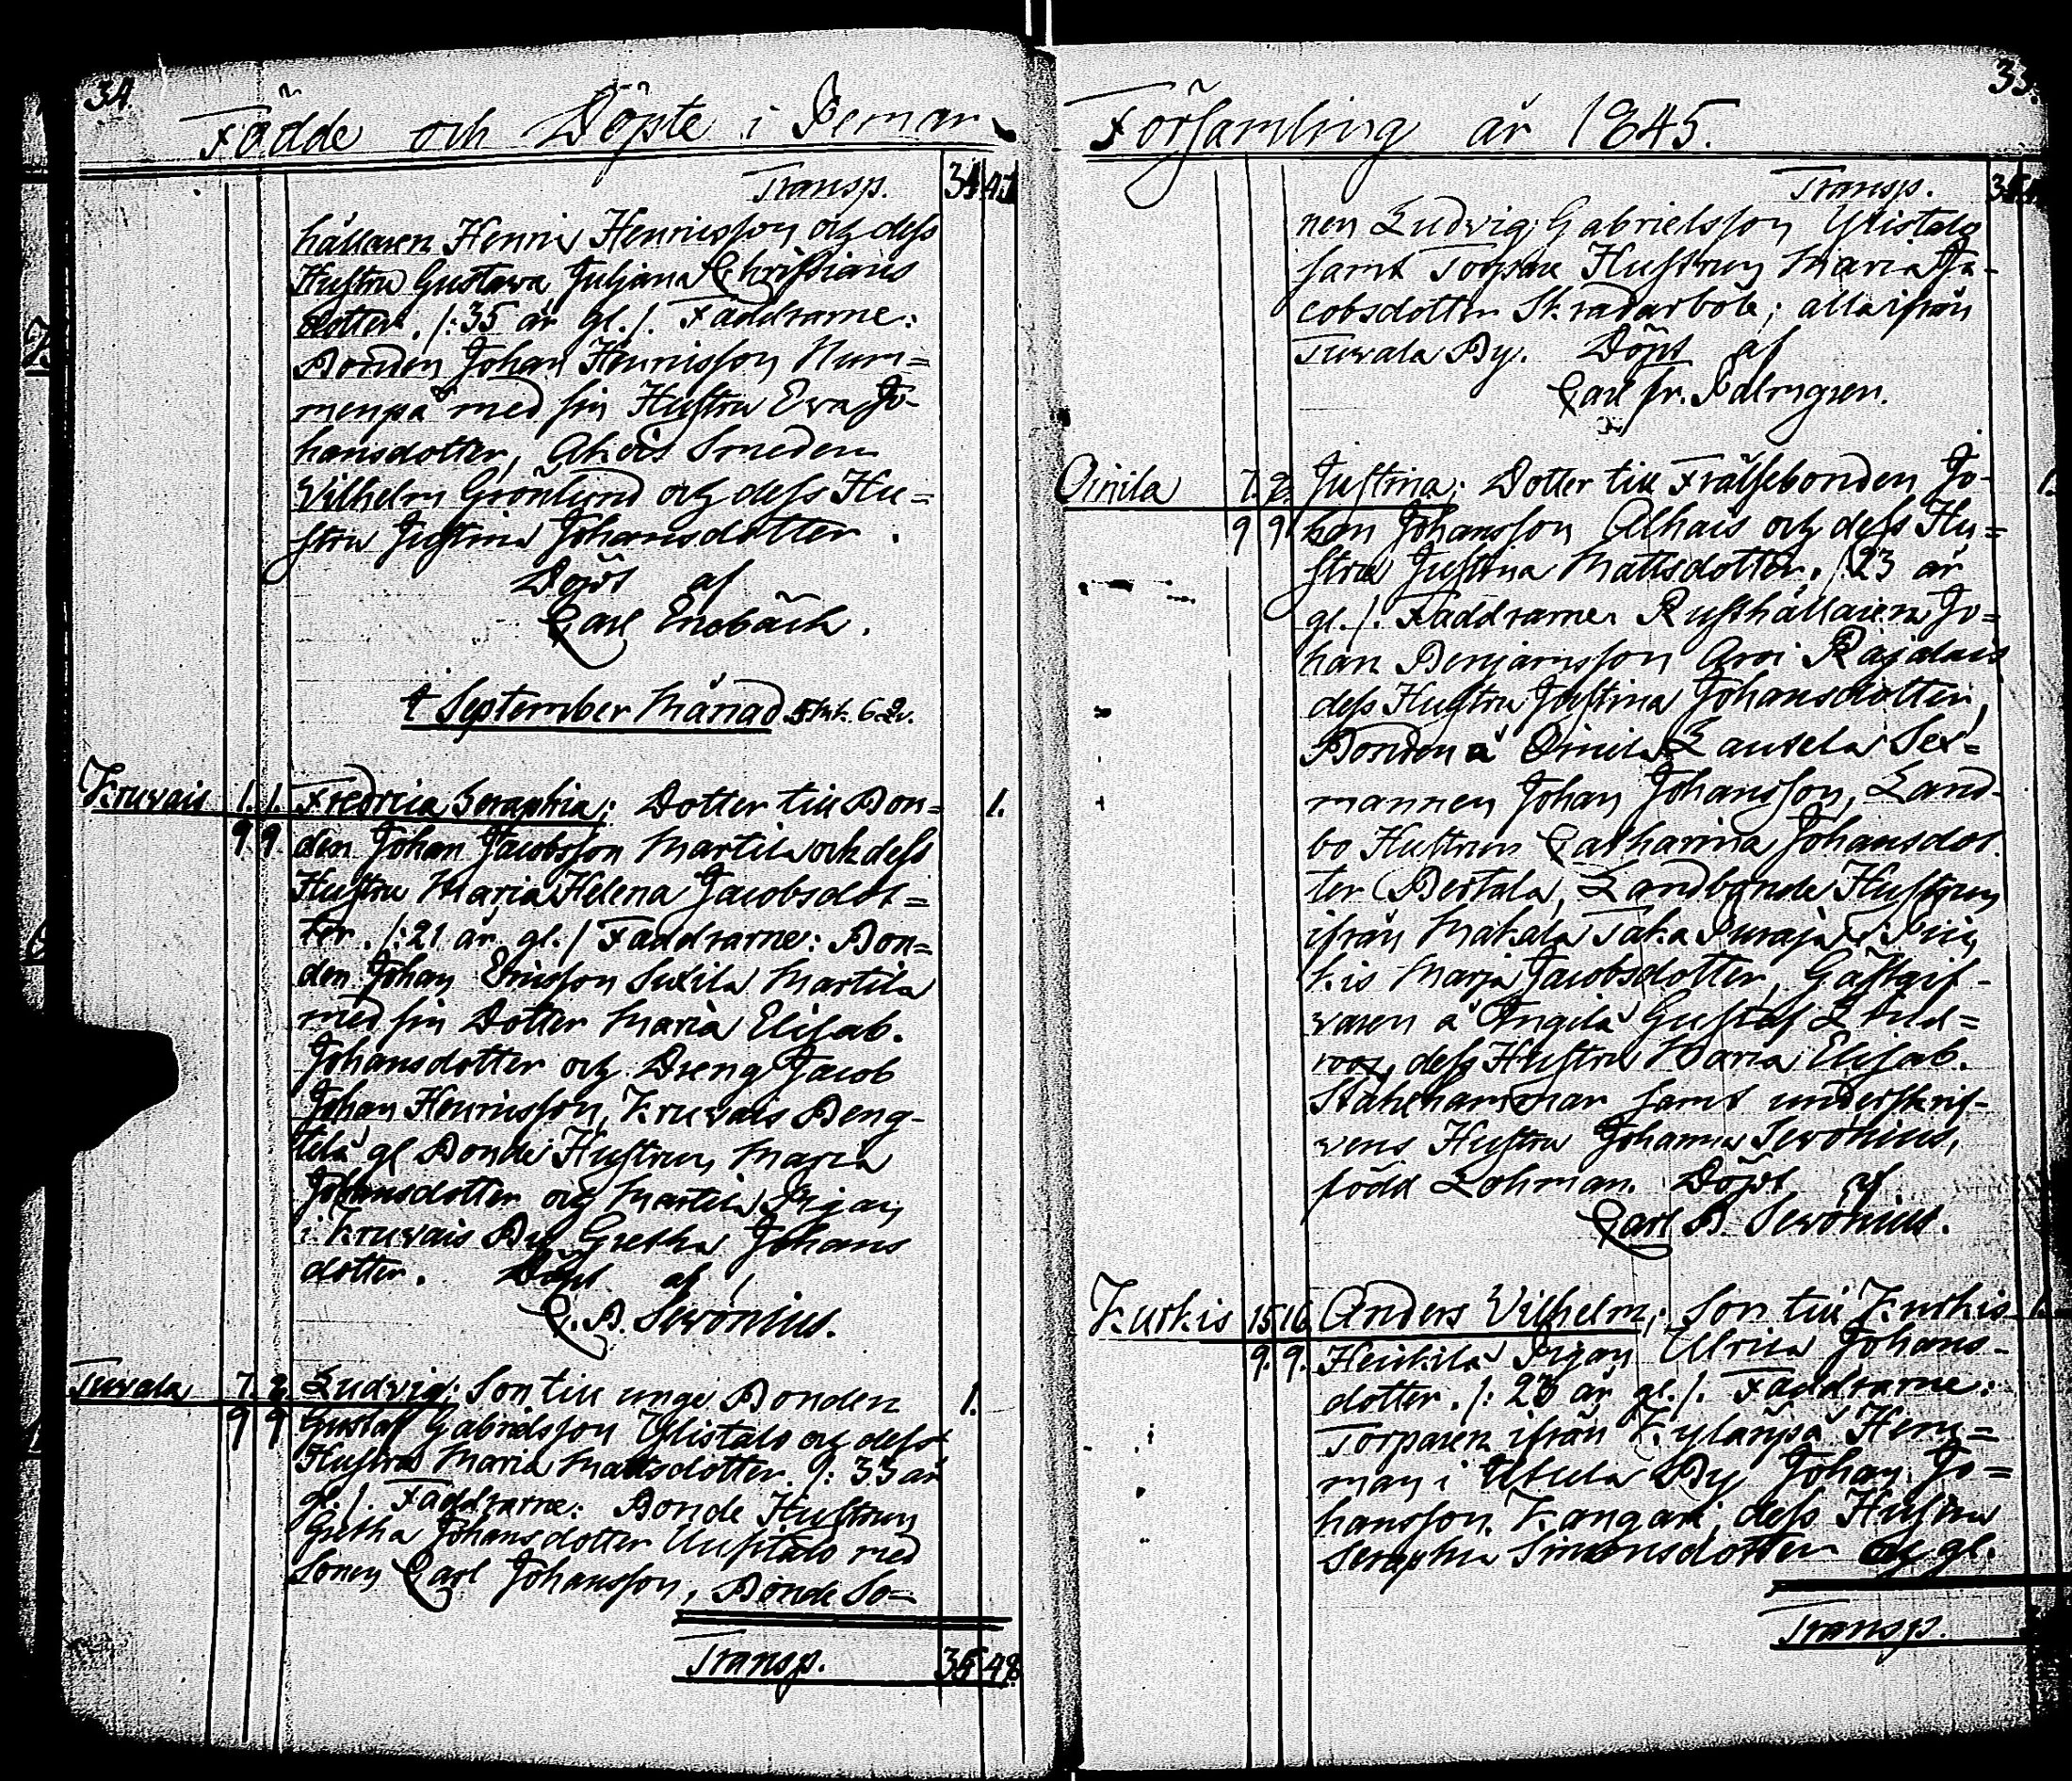 34.
Födde och Döpte i Pemar
Transp. 34 47
hållaren Henric Henricsson och dess
Hustru Gustava Juliana Christians
dotter. /: 35 år gl. /. Faddrarne:
Bonden Johan Henricsson Num=
menpä med sin Hustru Eva Jo-
hansdotter, Akois Smeden
Vilhelm Grönlund och dess Hu=
stru Justina Johansdotter.
Döpt af
Carl Enebäck.
September Månad
Kruvais 1. 1. Fredrica Seraphia; Dotter till Bon= 1.
9. 9. den Johan Jacobsson Martila och dess
Hustru Maria Helena Jacobsdot=
ter. /: 21 år gl. / Faddrarne: Bon=
den Johan Ericsson Suxila Martila
med sin Dotter Maria Elisab.
Johansdotter och Dreng Jacob
Johan Henricsson, Kruvais Beng-
telä gl Bonde Hustrun Maria
Johansdotter och Martila Pigan
i Kruvais By Gretha Johans
dotter. Döpt af
C. B. Sevonius.
Tuvala 7. 8. Ludvig; Son till unge Bonden 1.
9 9 Gustaf Gabrielsson Ylistalo och dess
Hustru Maria Mattsdotter /: 33 år
gl. /. Faddrarne: Bonde Hustrun
Gretha Johansdotter Uusitalo med
Sonen Carl Johansson, Bonde So-
Transp. 35 48
35.
Församling år 1845.
Transp.
nen Ludvig Gabrielsson Ylistalo
samt Torpare Hustrun Maria Ja-
cobsdotter Skradarböle; alla ifrån
Tuvala By. Döpt af
Carl Fr. Palmgren.
Oinila 7. 8. Justina; Dotter till Frälsebonden Jo- 1.
9 9 han Johansson Alhais och dess Hu=
stru Justina Mattsdotter. /: 23 år
gl. /. Faddrarne: Rusthållaren Jo=
han Benjamsson Arvi
dess Hustru Justina Johansdotter,
Bonden å Oinila Lausela Sex=
mannen Johan Johansson, Land-
bo Hustrun Catharina Johansdot
ter Bertala, Landbonde Hustrun
ifrån Makala Taka
kis Marja Jacobsdotter, Gästgif-
varen å Angila Gustaf Lind=
roos, dess Hustru Maria Elisab.
Stålhammar samt underskrif-
vens Hustru Johanna Sevonius,
född Lohman. Döpt af
Carl B. Sevonius.
Kurkis 15 16 Anders Vilhelm; Son till Kurkis 1.
9. 9. Heickilä Pigan Ulrica Johans-
dotter. /: 23 år gl. /. Faddrarne:
Torparen ifrån Kylänpä Hem=
man i Utula By Johan Jo=
hansson Kangari, dess Hustru
Seraphia Simonsdotter och gl.
Transp.